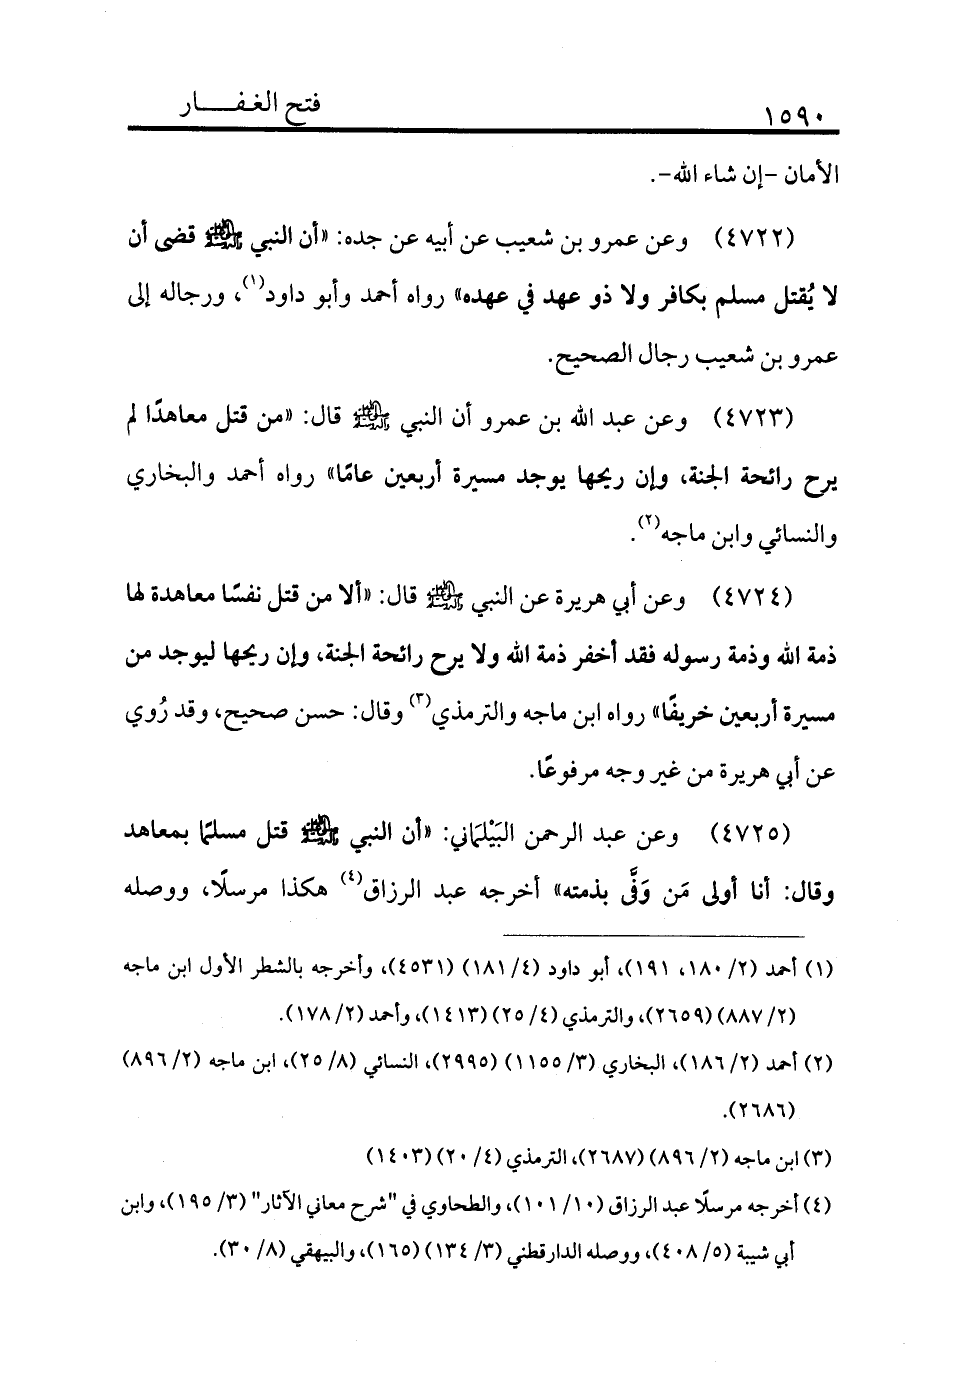 ١٥٩٠ فتح الغفـــار
الأمان -إن شاء الله-.
(٤٧٢٢) وعن عمرو بن شعيب عن أبيه عن جده: «أن النبي ﷺ قضى أن
لا يُقتل مسلم بكافر ولا ذو عهد في عهده» رواه أحمد وأبو داود(١)، ورجاله إلى
عمرو بن شعيب رجال الصحيح.
(٤٧٢٣) وعن عبد الله بن عمرو أن النبي ﷺ قال: «من قتل معاهدًا لم
يرح رائحة الجنة، وإن ريحها يوجد مسيرة أربعين عامًا» رواه أحمد والبخاري
والنسائي وابن ماجه(٢).
(٤٧٢٤) وعن أبي هريرة عن النبي ﷺ قال: «ألا من قتل نفسًا معاهدة لها
ذمة الله وذمة رسوله فقد أخفر ذمة الله ولا يرح رائحة الجنة، وإن ريحها ليوجد من
مسيرة أربعين خريفًا» رواه ابن ماجه والترمذي(٣) وقال: حسن صحيح، وقد رُوي
عن أبي هريرة من غير وجه مرفوعًا.
(٤٧٢٥) وعن عبد الرحمن البَيْلَماني: «أن النبي ﷺ قتل مسلمًا بمعاهد
وقال: أنا أولى مَن وَفَّى بذمته» أخرجه عبد الرزاق(٤) هكذا مرسلًا، ووصله
(١) أحمد (٢/ ١٨٠، ١٩١)، أبو داود (٤/ ١٨١) (٤٥٣١)، وأخرجه بالشطر الأول ابن ماجه
(٢/ ٨٨٧) (٢٦٥٩)، والترمذي (٤/ ٢٥) (١٤١٣)، وأحمد (٢/ ١٧٨).
(٢) أحمد (٢/ ١٨٦)، البخاري (٣/ ١١٥٥) (٢٩٩٥)، النسائي (٨/ ٢٥)، ابن ماجه (٢/ ٨٩٦)
(٢٦٨٦).
(٣) ابن ماجه (٢/ ٨٩٦) (٢٦٨٧)، الترمذي (٤/ ٢٠) (١٤٠٣)
(٤) أخرجه مرسلًا عبد الرزاق (١٠/ ١٠١)، والطحاوي في "شرح معاني الآثار" (٣/ ١٩٥)، وابن
أبي شيبة (٥/ ٤٠٨)، ووصله الدارقطني (٣/ ١٣٤) (١٦٥)، والبيهقي (٨/ ٣٠).